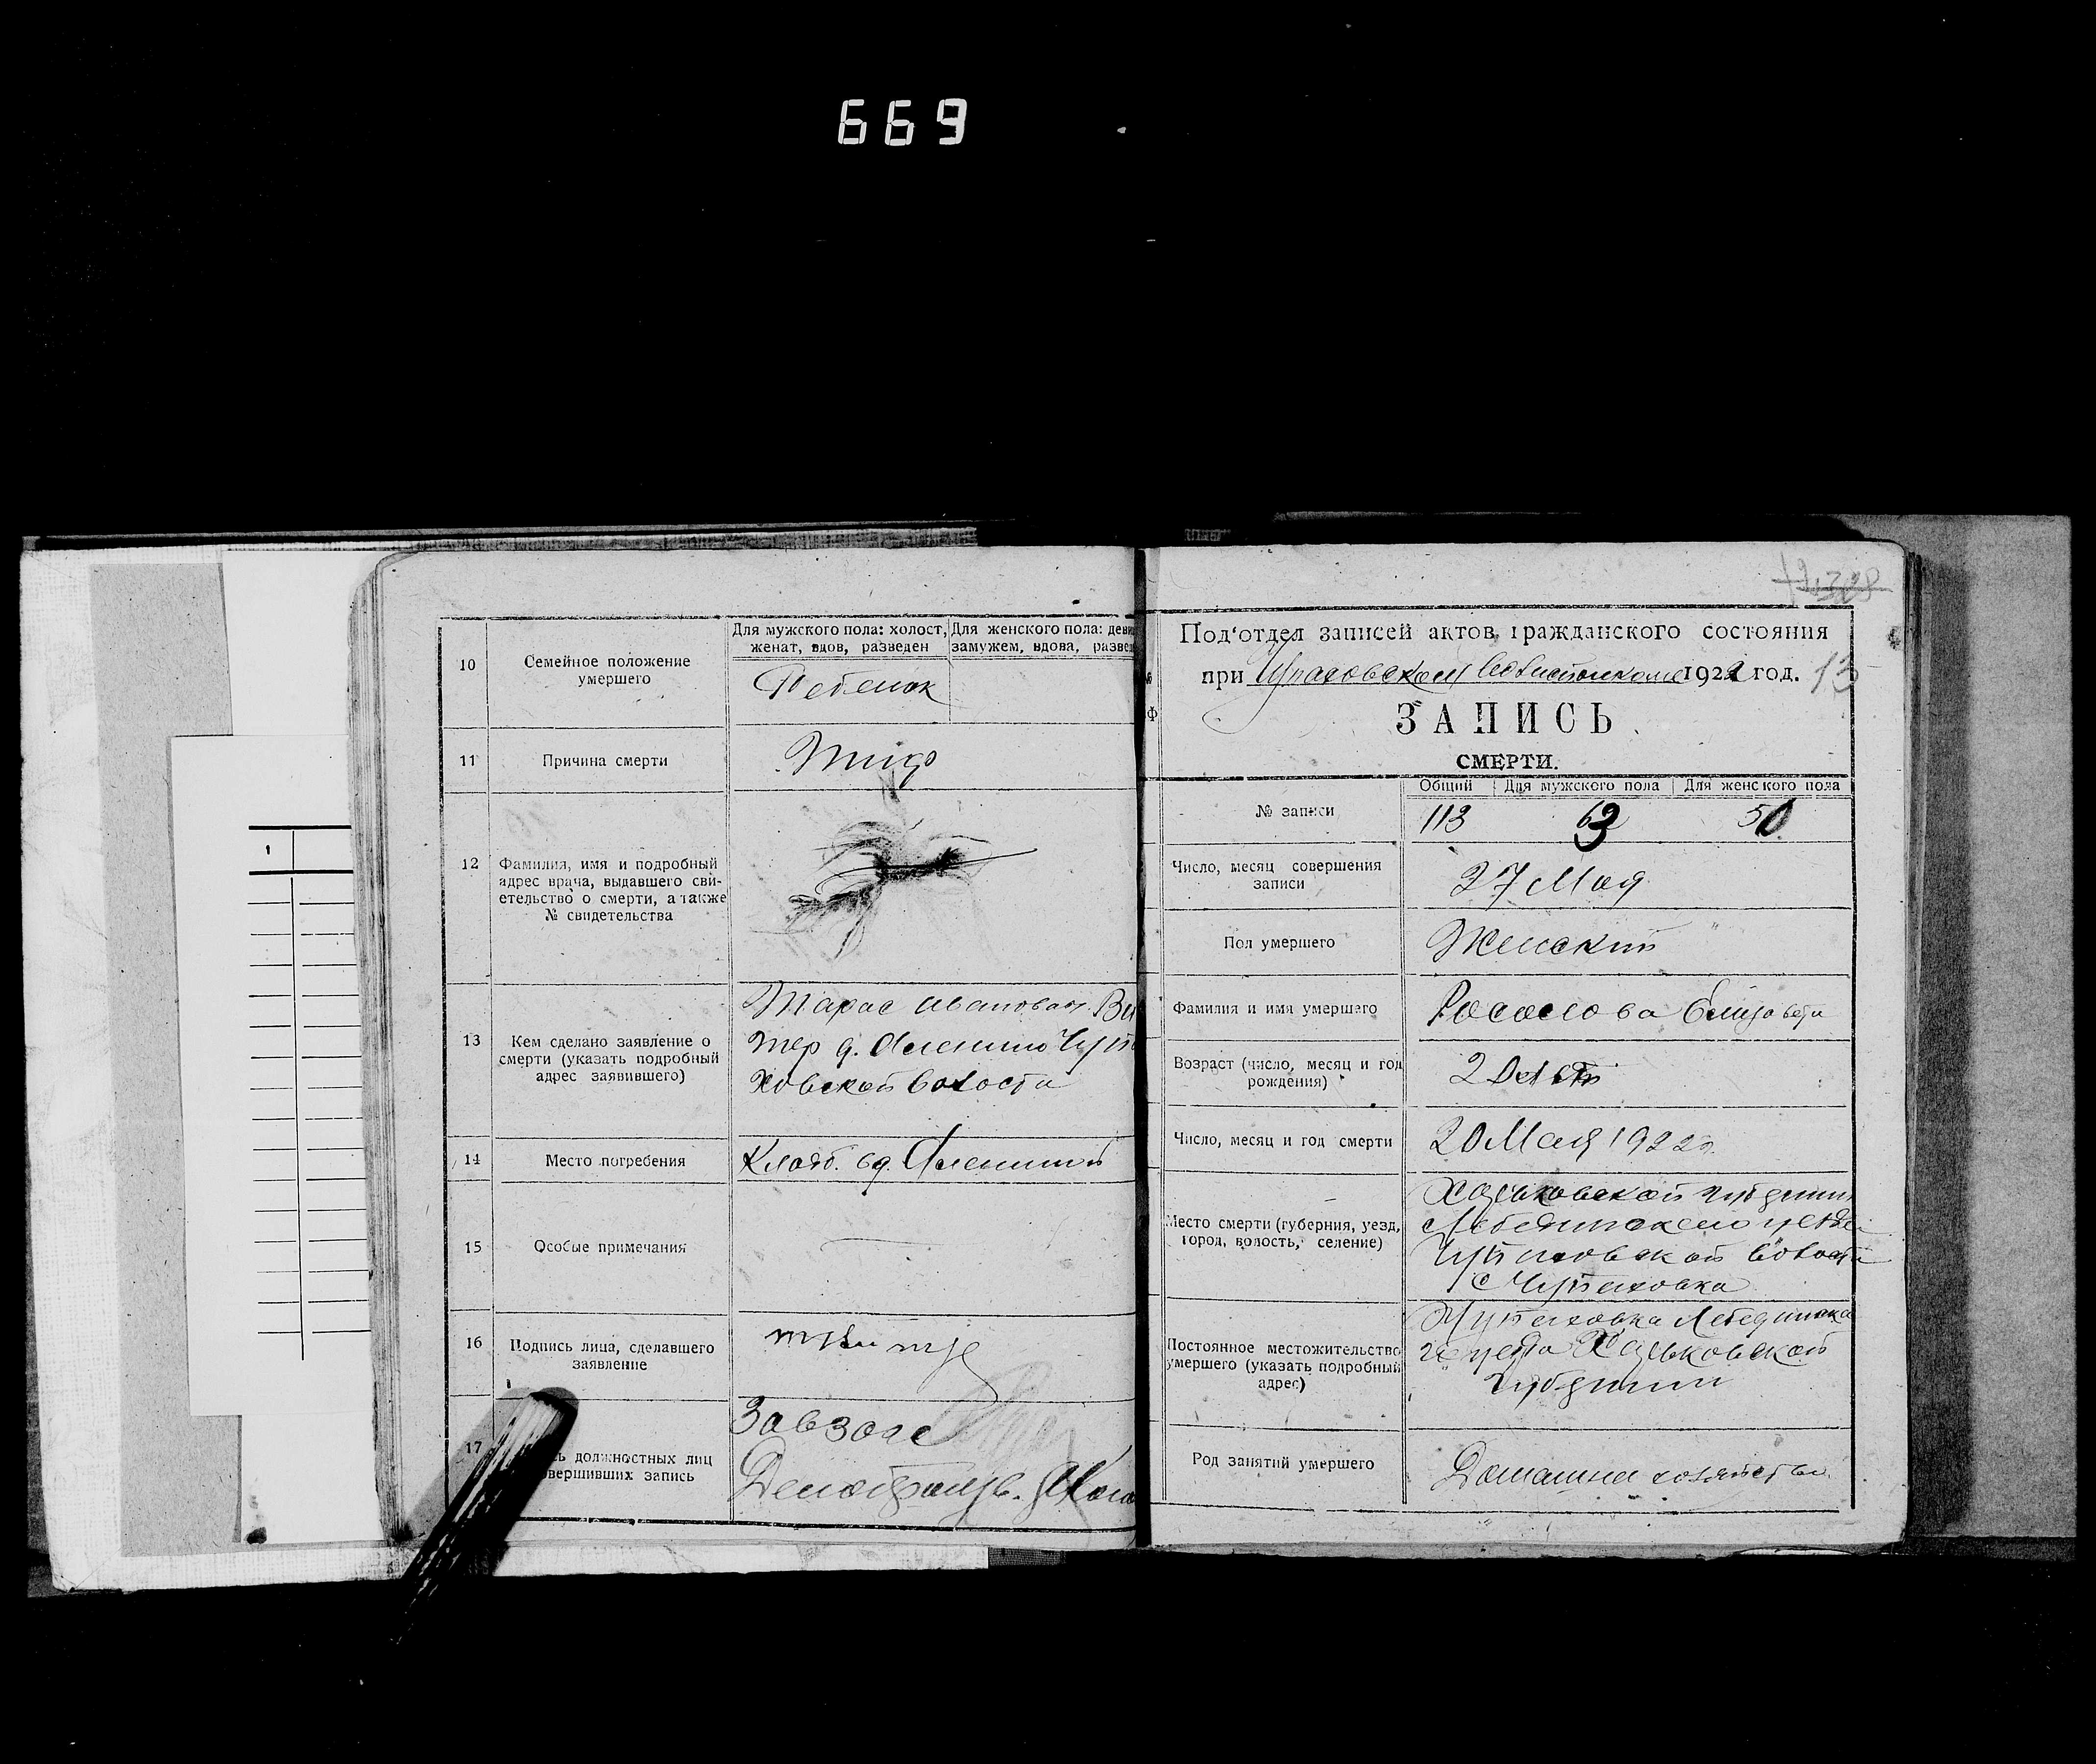 669
10
Семейное положение
умершего
Для мужского пола: холост,
женат, вдов, разведен
Для женского пола: деви
замужем, вдова, развед
Ребенок
11
Причина смерти
Тиф
12
Фамилия, имя и подробный
адрес врача, выдавшего сви-
етельство о смерти, а также
№ свидетельства
13
Кем сделано заявление о
смерти (указать подробный
адрес заявившего)
Тарас Иванович
ховской волости
14
Место погребения
Кладб.
15
Особые примечания
16
Подпись лица, сделавшего
заявление
17
ь должностных лиц
вершивших запись
Завзагс
Под'отдел записей актов гражданского состояния
при 1922 год. 13
ЗАПИСЬ
СМЕРТИ.
№ записи
Общий
Для мужского пола
Для женского пола
113
63
50
Число, месяц совершения
записи
27 Мая
Пол умершего
Женский
Фамилия и имя умершего
Елизавета
Возраст (число, месяц и год
рождения)
20 лет
Число, месяц и год смерти
20 Мая 1922 г.
Место смерти (губерния, уезд,
город, волость, селение)
Харьковской губернии
Лебединского уезда
волости
с
Постоянное местожительство
умершего (указать подробный
адрес)
Лебединско
го уезда Харьковской
губернии
Род занятий умершего
Домашнее хозяйство